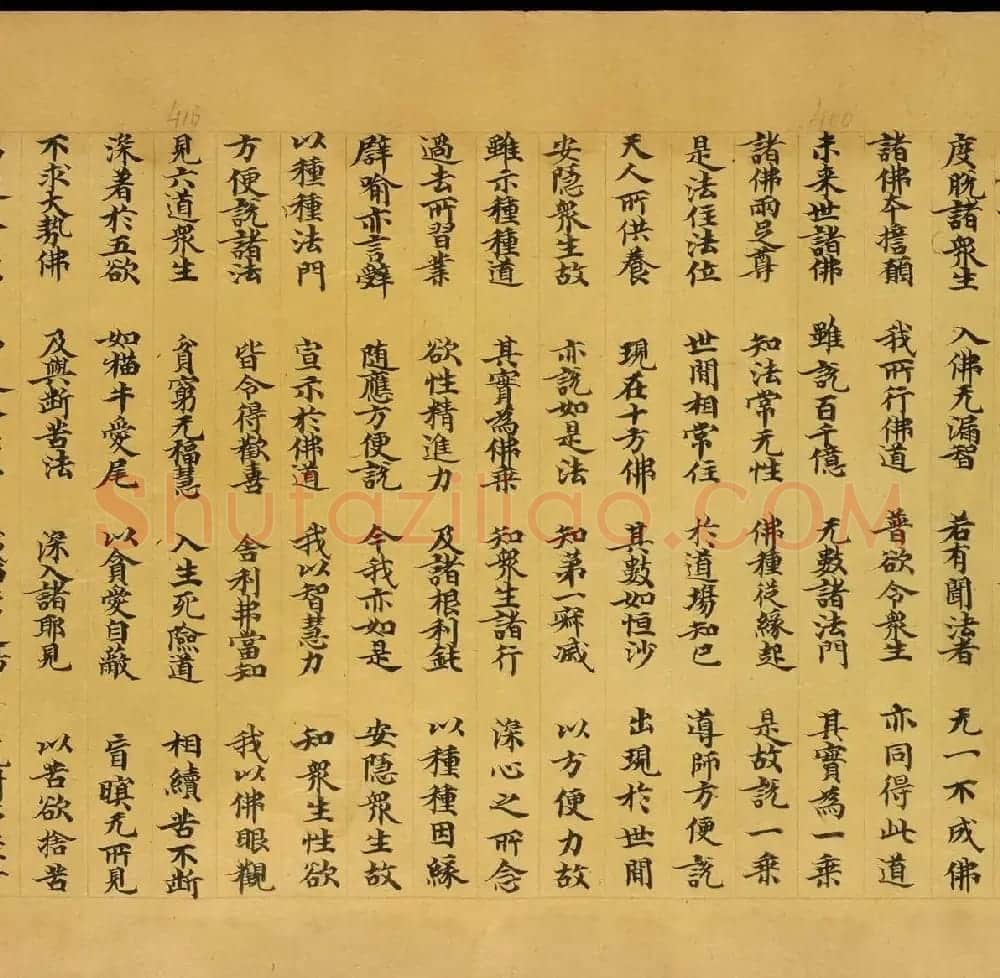 度脫諸衆生 入佛无漏智 若有聞法者 无一不成佛
諸佛本擔願 我所行佛道 普欲令衆生 亦同得此道
未来世諸佛 雖說百千億 无數諸法門 其實為一乗
諸佛兩足尊 知法常无性 佛種從緣起 是故說一乗
是法住法位 世間相常住 於道場知已 導師方便說
天人所供養 現在十方佛 其數如恒沙 出現於世間
安隠衆生故 亦說如是法 知第一寂滅 以方便力故
雖示種種道 其實為佛乗 知衆生諸行 深心之所念
過去所習業 欲性精進力 及諸根利鈍 以種種因緣
譬喻亦言辭 随應方便說 今我亦如是 安隠衆生故
以種種法門 宣示於佛道 我以智慧力 知衆生性欲
方便說諸法 皆令得歡喜 舎利弗當知 我以佛眼觀
見六道衆生 貧窮无福慧 入生死險道 相續苦不断
深著於五欲 如猫牛愛尾 以貪愛自蔽 盲瞑无所見
不求大勢佛 及與断苦法 深入諸耶見 以苦欲捨苦
400
410
Shufaziliao.COM